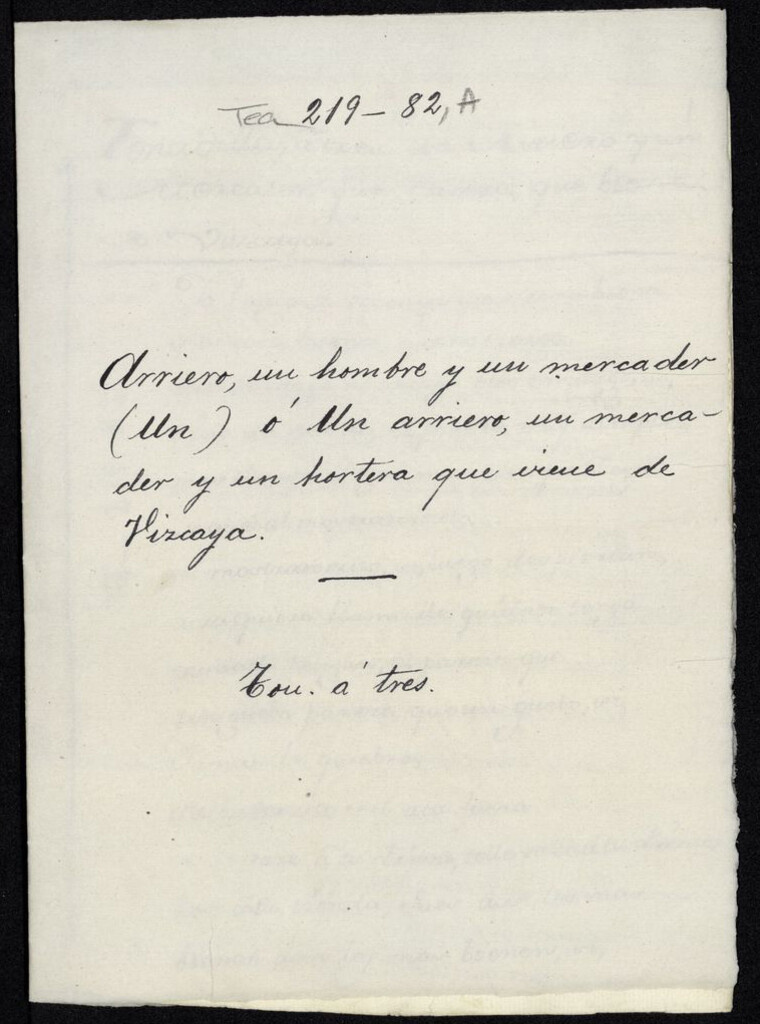 Tea 219-82, A
Arriero, un hombre y un mercader
(Un) ó Un arriero, un merca-
der y un hortera que viene de
Vizcaya.
Ton. á tres.